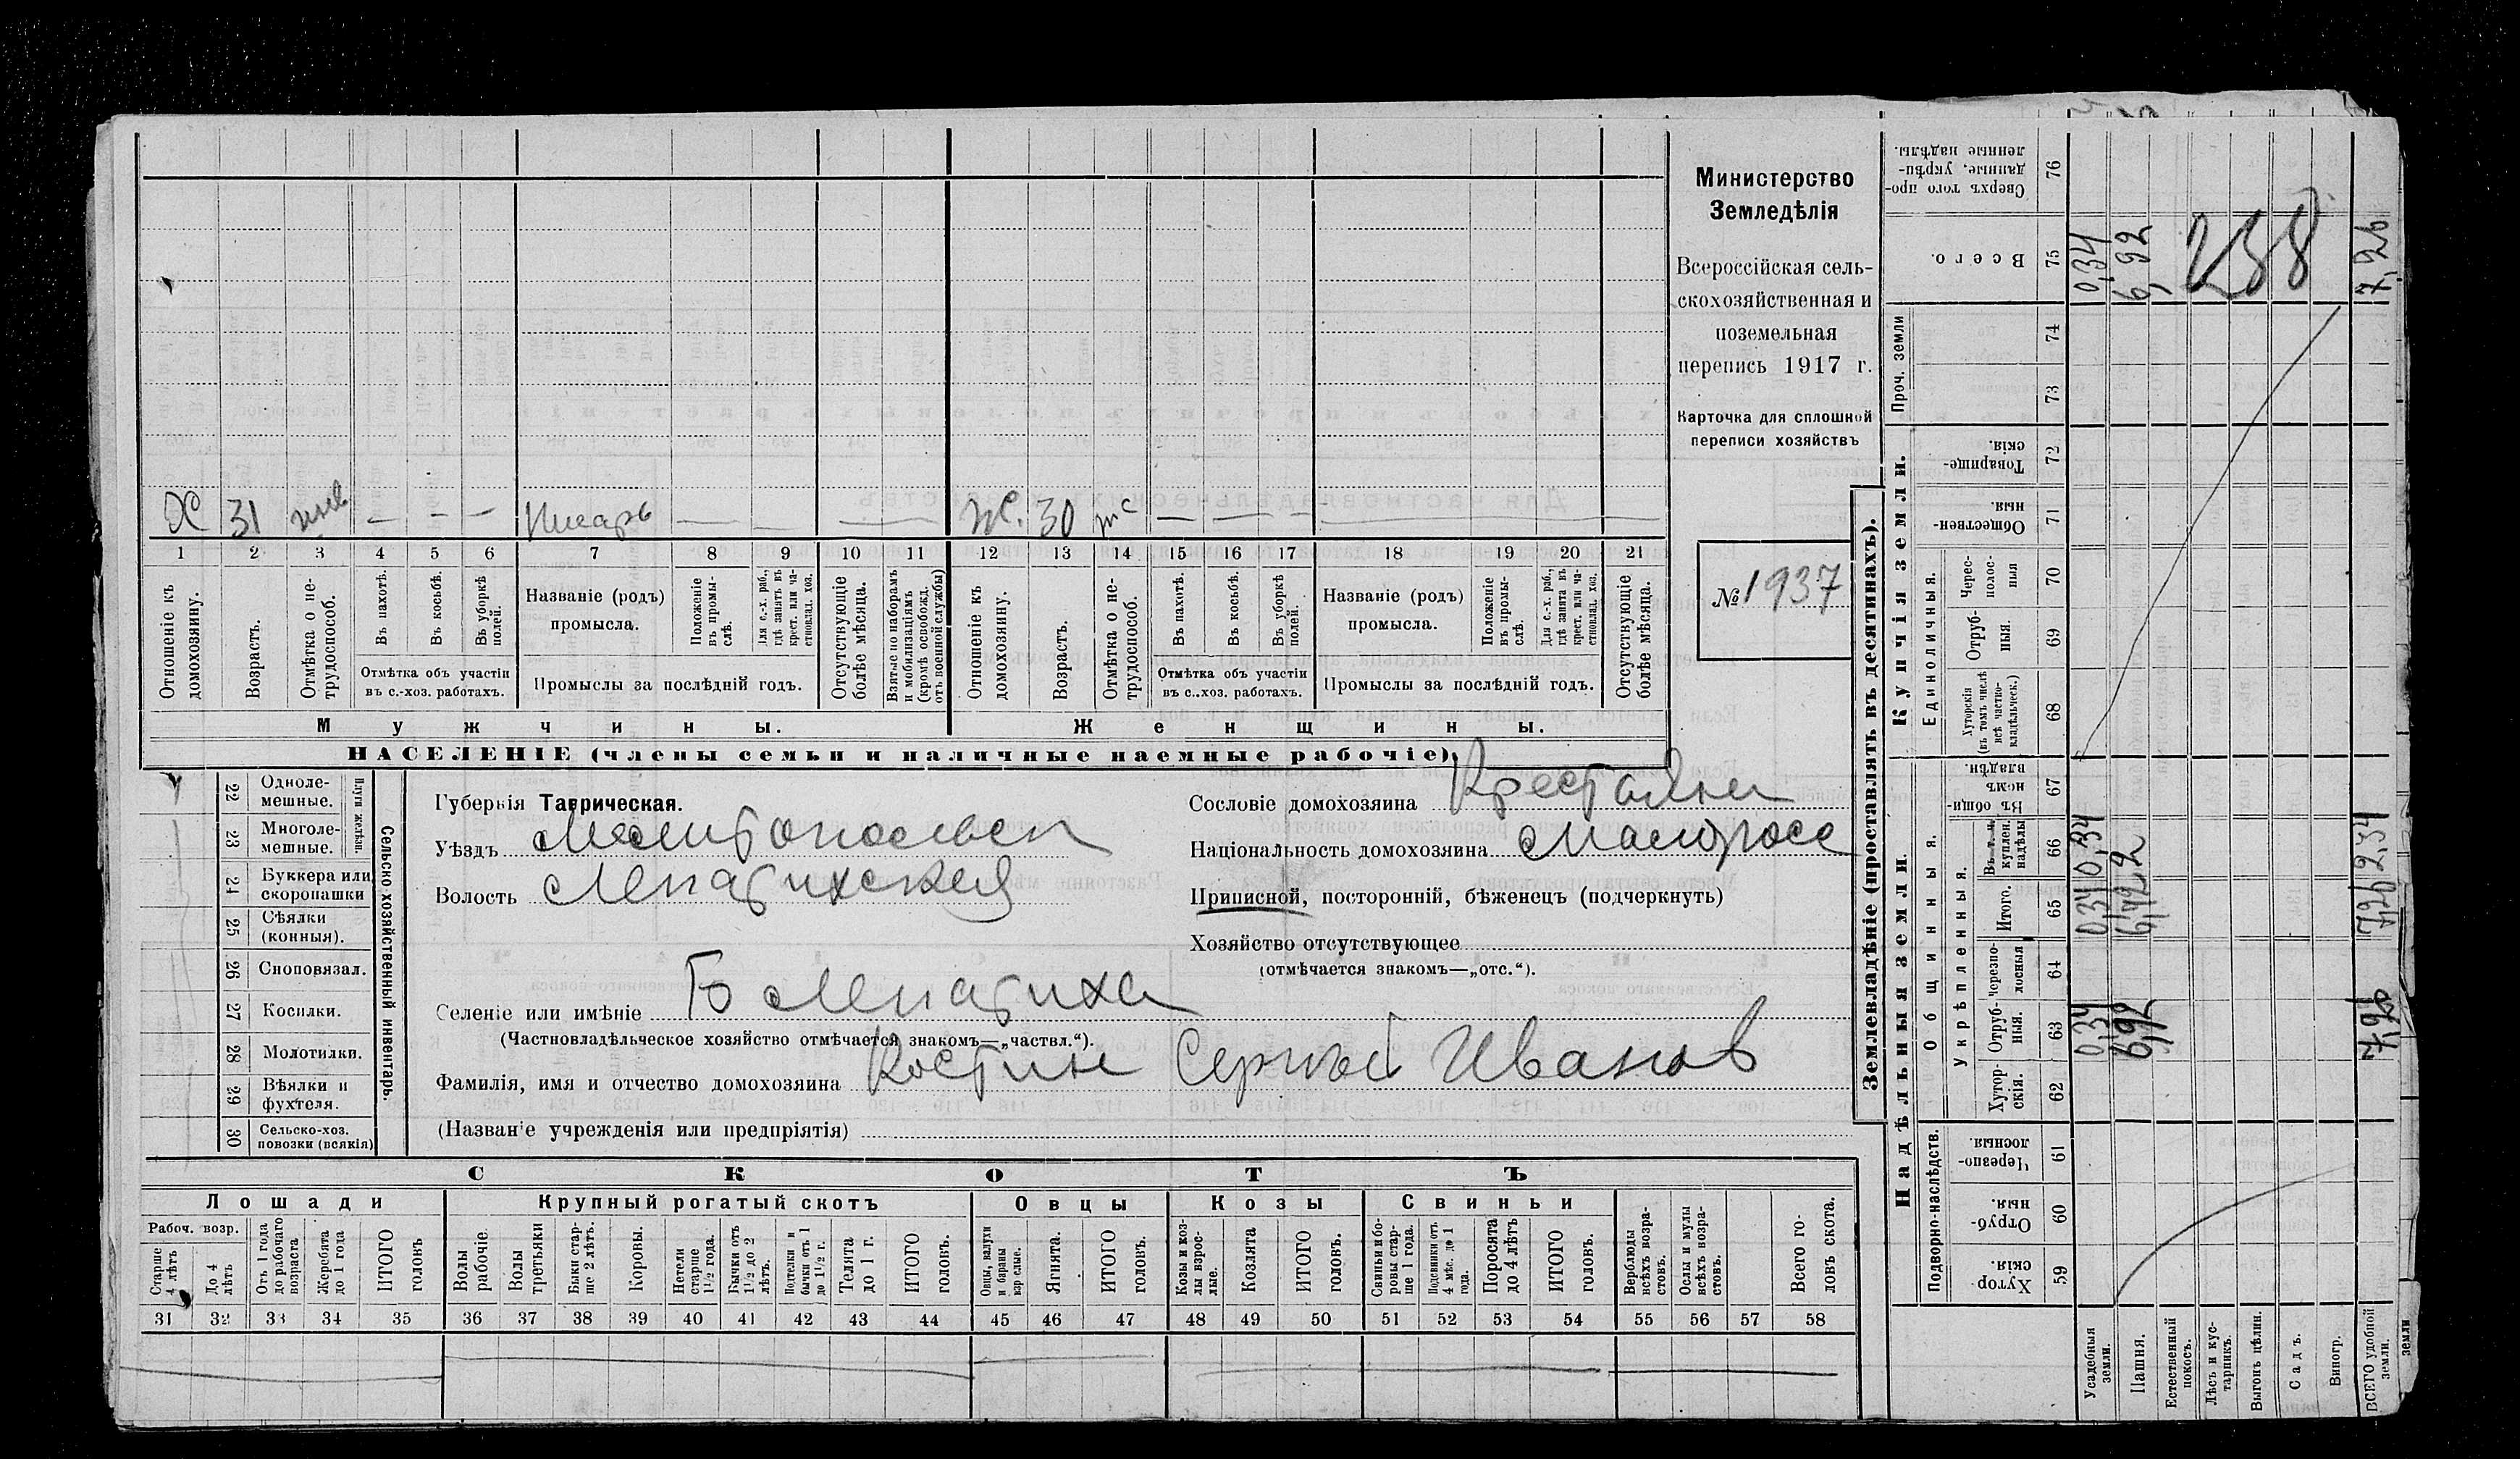 Х 31 инв — — — Писарь — — — — Ж. 30 тс — — — — — — —
1 2 3 4 5 6 7 8 9 10 11 12 13 14 15 16 17 18 19 20 21
Отношеніе къ домохозяину.
Возрастъ.
Отмѣтка о не-
трудоспособ.
Въ пахотѣ.
Въ косьбѣ.
Въ уборкѣ
полей.
Отмѣтка объ участіи
въ с.-хоз. работахъ.
Названіе (родъ)
промысла.
Положеніе
въ промы-
слѣ.
Для с.-х. раб.,
гдѣ занятъ въ
крест. или ча-
стновлад. хоз.
Промыслы за послѣдній годъ.
Отсутствующіе
болѣе мѣсяца.
Взятые по наборамъ
и мобилизаціямъ
(кромѣ освобожд.
отъ военной службы)
Отношеніе къ
домохозяину.
Возрастъ.
Отмѣтка о не-
трудоспособ.
Въ пахотѣ.
Въ косьбѣ.
Въ уборкѣ
полей.
Отмѣтка объ участіи
въ с..хоз. работахъ.
Названіе (родъ)
промысла.
Положеніе
въ промы-
слѣ.
Для с.-х. раб.,
гдѣ занята въ
крест. или ча-
стновлад. хоз.
Промыслы за послѣдній годъ.
Отсутствующіе
болѣе мѣсяца.
Мужчины.
Женщины.
НАСЕЛЕНІЕ (члены семьи и наличные наемные рабочіе).
Министерство
Земледѣлія
Всероссійская сель-
скохозяйственная и
поземельная
перепись 1917 г.
Карточка для сплошной
переписи хозяйствъ
№ 1937
22 Одноле-
мешные.
23 Многоле-
мешные.
Плуги желѣзн.
24 Буккера или
скоропашки
25 Сѣялки
(конныя).
26 Сноповязал.
27 Косилки.
28 Молотилки.
29 Вѣялки и
фухтеля.
30 Сельско-хоз.
повозки (всякія)
Сельско-хозяйственный инвентарь.
Губернія Таврическая.
Уѣздъ Мелитопольск
Волость Лепатихская
Селеніе или имѣніе Б Лепатиха
(Частновладѣльческое хозяйство отмѣчается знакомъ—„частвл.“).
Фамилія, имя и отчество домохозяина Костин Сергѣй Иванов
(Названіе учрежденія или предпріятія)
Сословіе домохозяина Крестьянин
Національность домохозяина Малоросс
Приписной, посторонній, бѣженецъ (подчеркнуть)
Хозяйство отсутствующее
(отмѣчается знакомъ—„отс.“).
СКОТЪ
Лошади
Крупный рогатый скотъ
Овцы
Козы
Свиньи
Рабоч. возр.
Старше
4 лѣтъ
До 4
лѣтъ
Отъ 1 года
до рабочаго
возраста
Жеребята
до 1 года
ИТОГО
головъ
Волы
рабочіе.
Волы
третьяки
Быки стар-
ше 2 лѣтъ.
Коровы.
Нетели
старше
1½ года.
Бычки отъ
1½ до 2
лѣтъ.
Подтелки и
бычки отъ 1
до 1½ г.
Телята
до 1 г.
ИТОГО
головъ.
Овцы, валухи
и бараны
взрослые.
Ягнята.
ИТОГО
головъ.
Козы и коз-
лы взрос-
лые.
Козлята
ИТОГО
головъ.
Свиньи и бо-
ровы стар-
ше 1 года.
Подсвинки отъ
4 мѣс. до 1
года.
Поросята
до 4 лѣтъ
ИТОГО
головъ.
Верблюды
всѣхъ возра-
стовъ.
Ослы и мулы
всѣхъ возра-
стовъ.
Всего го-
ловъ скота.
31 32 33 34 35 36 37 38 39 40 41 42 43 44 45 46 47 48 49 50 51 52 53 54 55 56 57 58
Землевладѣніе (проставлять въ десятинахъ).
Купчія земли.
Надѣльныя земли.
Проч. земли
Единоличныя.
Общинныя.
Укрѣпленныя.
Подворно-наслѣдств.
Сверхъ того про-
данные, укрѣп-
ленные надѣлы.
76
Всего.
75 0,34 6,92 7,26
238
74
73
Товарище-
скія.
72
Обществен-
ныя.
71
Черес-
полос-
ныя
70
Отруб-
ныя.
69
Хуторскія
(въ томъ числѣ
всѣ частно-
владѣльческ.)
68
Въ общи-
номъ
владѣн.
67
Въ т. ч.
куплен.
надѣлы
66 0,34 2,34
Итого.
65 0,34 7,26
Черезпо-
лосныя
64
Отруб-
ныя.
63 0,34 6,92
Хутор-
скія.
62
Черезпо-
лосныя.
61
Отруб-
ныя.
60
Хутор-
скія.
59
Усадебныя
земли.
Пашня.
Естественный
покосъ.
Лѣсъ и кус-
тарникъ.
Выгонъ цѣлин.
Садъ.
Виногр.
ВСЕГО удобной
земли.